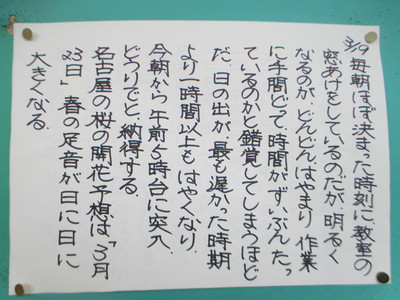 3/19 毎朝ほぼ決まった時刻に、教室の
窓あけをしているのだが、明るく
なるのが、どんどんはやまり、作業
に手間どって、時間がずいぶんたっ
ているのかと錯覚してしまうほど
だ。日の出が、最も遅かった時期
より一時間以上も、はやくなり、
今朝から、午前5時台に突入。
どうりでと、納得する。
名古屋の桜の開花予想は、「3月
23日」春の足音が日に日に
大きくなる。